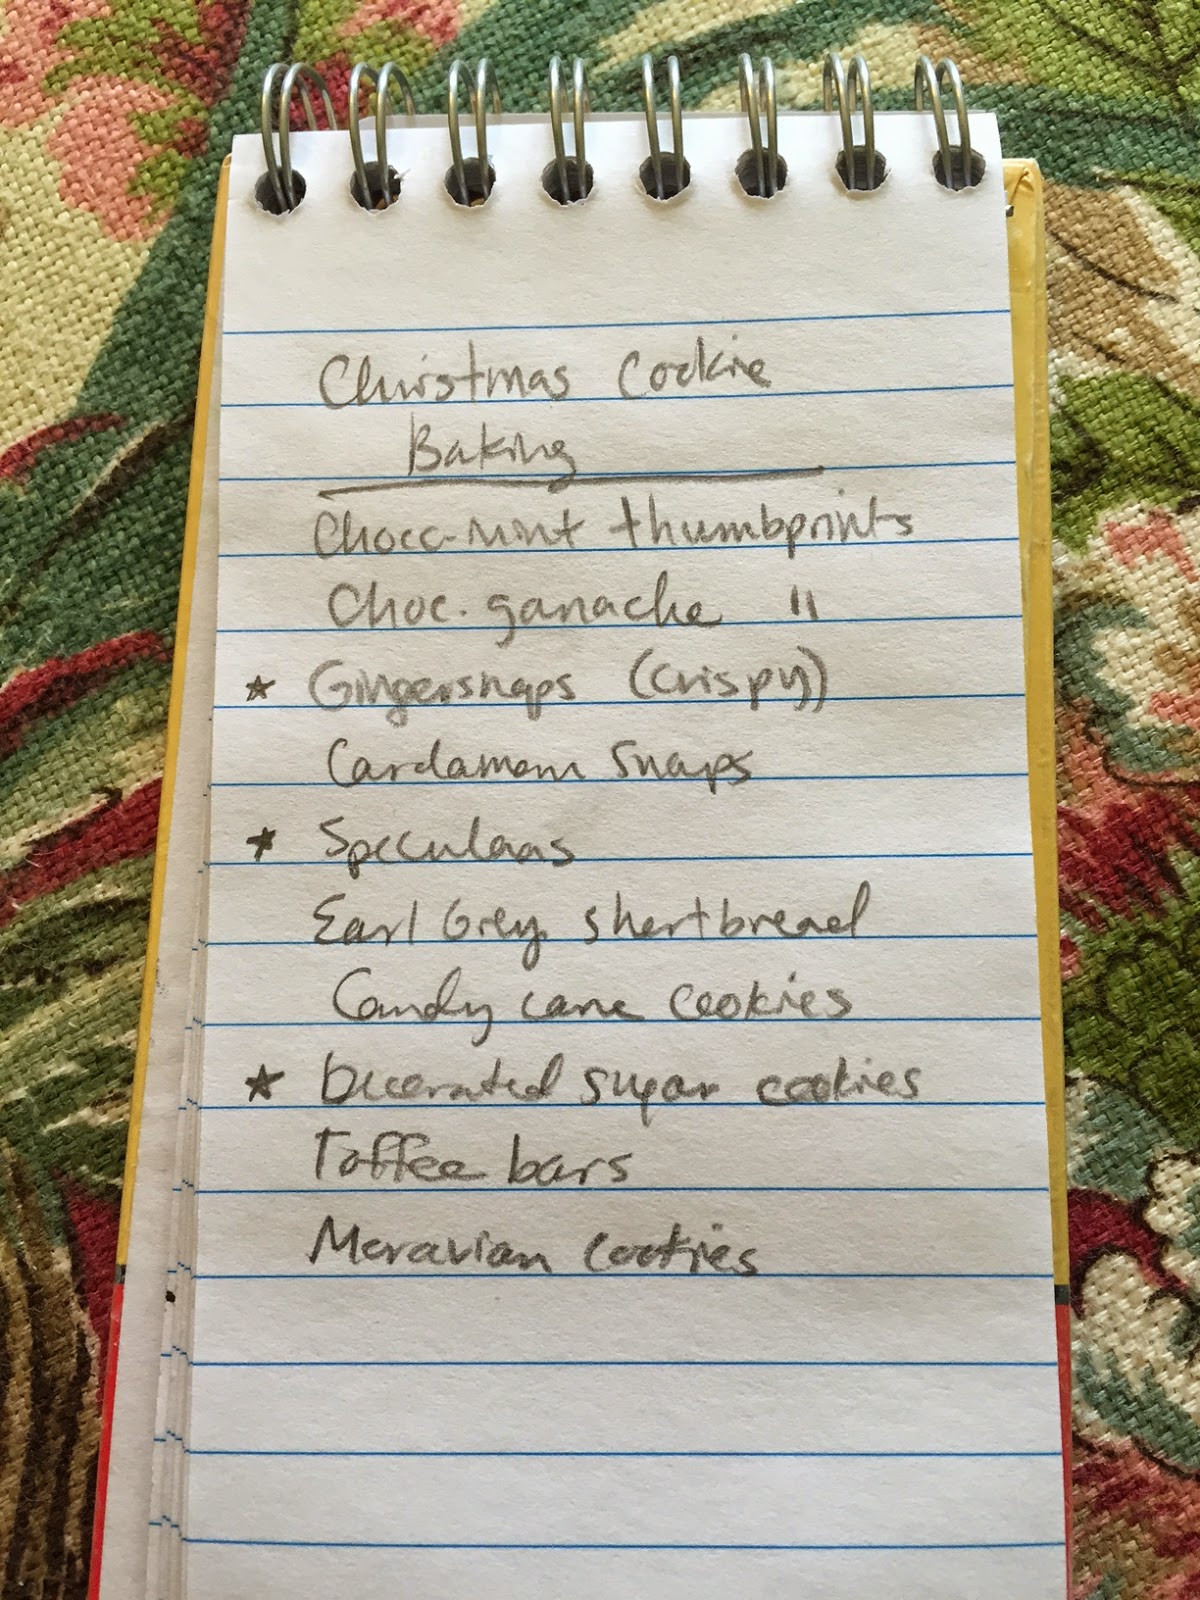 Christmas Cookie
Baking
Choco-mint thumbprints
Choc. ganache "
★ Gingersnaps (crispy)
Cardamom snaps
★ Speculaas
Earl Grey shortbread
Candy cane cookies
★ Decorated sugar cookies
Toffee bars
Moravian cookies